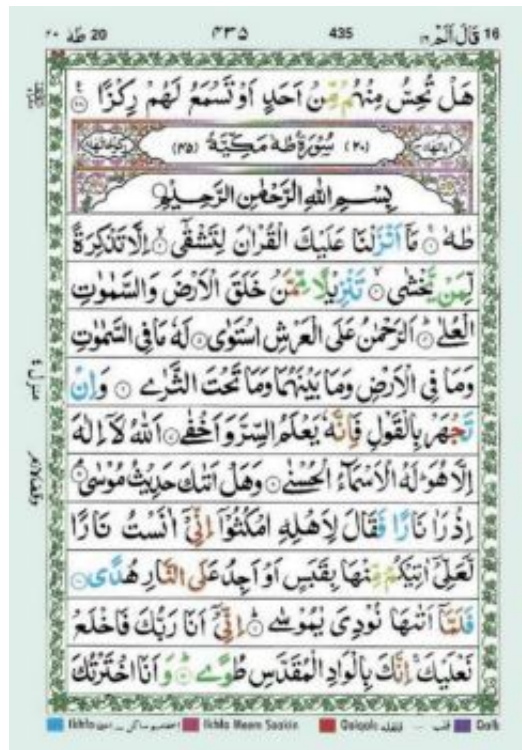 20 طٰهٰ ٢٠ ۴۳۵ 435 قَالَ اَلَمْ ١٦ 16
هَلْ تُحِسُّ مِنْهُمْ مِّنْ اَحَدٍ اَوْ تَسْمَعُ لَهُمْ رِكْزًا
(٢٠) سُوْرَةُ طٰهٰ مَكِّيَّةٌ (۴۵)
بِسْمِ اللّٰهِ الرَّحْمٰنِ الرَّحِيْمِ
طٰهٰ ۚ مَاۤ اَنْزَلْنَا عَلَيْكَ الْقُرْاٰنَ لِتَشْقٰۤى ۙ اِلَّا تَذْكِرَةً
لِّمَنْ يَّخْشٰى ۙ تَنْزِيْلًا مِّمَّنْ خَلَقَ الْاَرْضَ وَالسَّمٰوٰتِ
الْعُلٰى ؕ اَلرَّحْمٰنُ عَلَى الْعَرْشِ اسْتَوٰى لَهٗ مَا فِى السَّمٰوٰتِ
وَمَا فِى الْاَرْضِ وَمَا بَيْنَهُمَا وَمَا تَحْتَ الثَّرٰى وَاِنْ
تَجْهَرْ بِالْقَوْلِ فَاِنَّهٗ يَعْلَمُ السِّرَّ وَاَخْفٰى اَللّٰهُ لَاۤ اِلٰهَ
اِلَّا هُوَ ؕ لَهُ الْاَسْمَآءُ الْحُسْنٰى وَهَلْ اَتٰىكَ حَدِيْثُ مُوْسٰى ۘ
اِذْ رَاٰ نَارًا فَقَالَ لِاَهْلِهِ امْكُثُوْۤا اِنِّىْۤ اٰنَسْتُ نَارًا
لَّعَلِّىْۤ اٰتِيْكُمْ مِّنْهَا بِقَبَسٍ اَوْ اَجِدُ عَلَى النَّارِ هُدًى
فَلَمَّاۤ اَتٰىهَا نُوْدِىَ يٰمُوْسٰى ؕ اِنِّىْۤ اَنَا رَبُّكَ فَاخْلَعْ
نَعْلَيْكَ ۚ اِنَّكَ بِالْوَادِ الْمُقَدَّسِ طُوًى ؕ وَاَنَا اخْتَرْتُكَ
Ikhfa Ikhfa Meem Saakin Qalqala قلقله قلب Qalb